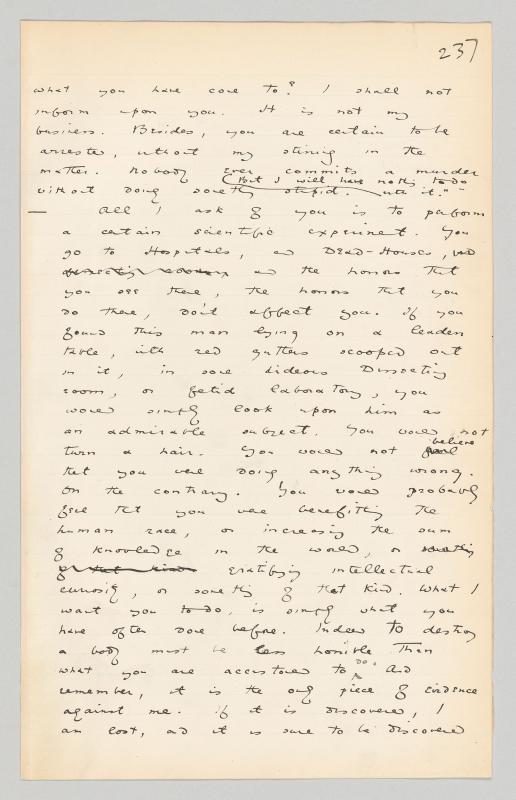 237
what you have come to? I shall not
inform upon you. It is not my
business. Besides, you are certain to be
arrested, without my stirring in the
matter. Nobody ever commits a murder
(But I will have nothing to do
without doing something stupid. with it."
— All I ask of you is to perform
a certain scientific experiment. You
go to Hospitals, and Dead-Houses, and
and the horrors that
you see there, the horrors that you
do there, don't affect you. If you
found this man lying on a leaden
table, with red gutters scooped out
in it, in some hideous Dissecting
room, or fetid laboratory, you
would simply look upon him as
an admirable subject. You would not
believe
turn a hair. You would not feel
that you were doing anything wrong.
On the contrary. You would probably
feel that you were benefitting the
human race, or increasing the sum
of knowledge in the world, or something
of that kind gratifying intellectual
curiosity, or something of that kind. What I
want you to do, is simply what you
have often done before. Indeed to destroy
a body must be less horrible than
what you are accustomed to do. And
remember, it is the only piece of evidence
against me. If it is discovered, I
am lost, and it is sure to be discovered